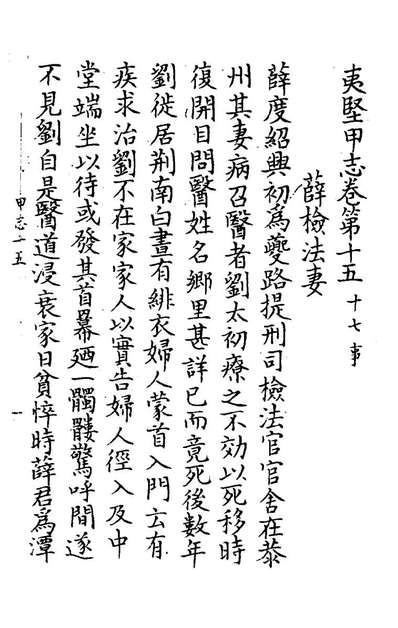 夷堅甲志卷第十五 十七事
薛檢法妻
薛度紹興初為夔路提刑司檢法官官舍在恭
州其妻病召醫者劉太初療之不効以死移時
復開目問醫姓名鄉里甚詳已而竟死後數年
劉徙居荆南白晝有緋衣婦人蒙首入門云有
疾求治劉不在家家人以實告婦人徑入及中
堂端坐以待或發其首冪廼一髑髏驚呼間遂
不見劉自是醫道浸衰家日貧悴時薛君為潭
甲志十五
一